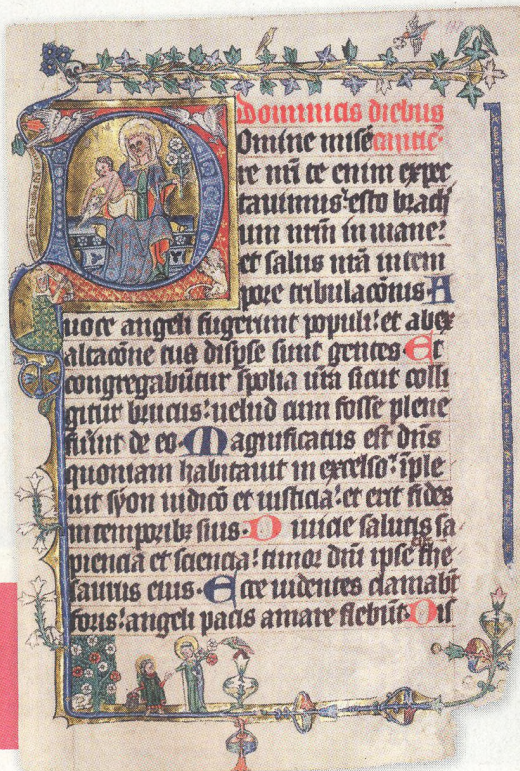 Dominicis diebus
Omine miserecantic.
re nri te enim expec
tauimus: esto brachi
um nrm in mane:
et salus nra in tem
pore tribulacōnis A
uoce angeli fugerunt populi: et ab ex
altacōne tua disp̄se sunt gentes. Et
congregabūtur spolia ūra sicut colli
gitur brucus: uelud cum fosse plene
fūint de eo. Magnificatus est dn̄s
quoniam habitauit in excelso: īple
uit syon iudicō et iusticia: et erit fides
in temporibꝫ suis. Diuicie salutis sa
piencia et sciencia: timor dn̄i ipse the
saurus eius. Ecce uidentes clamabūt
foris: angeli pacis amare flebūt. Dis